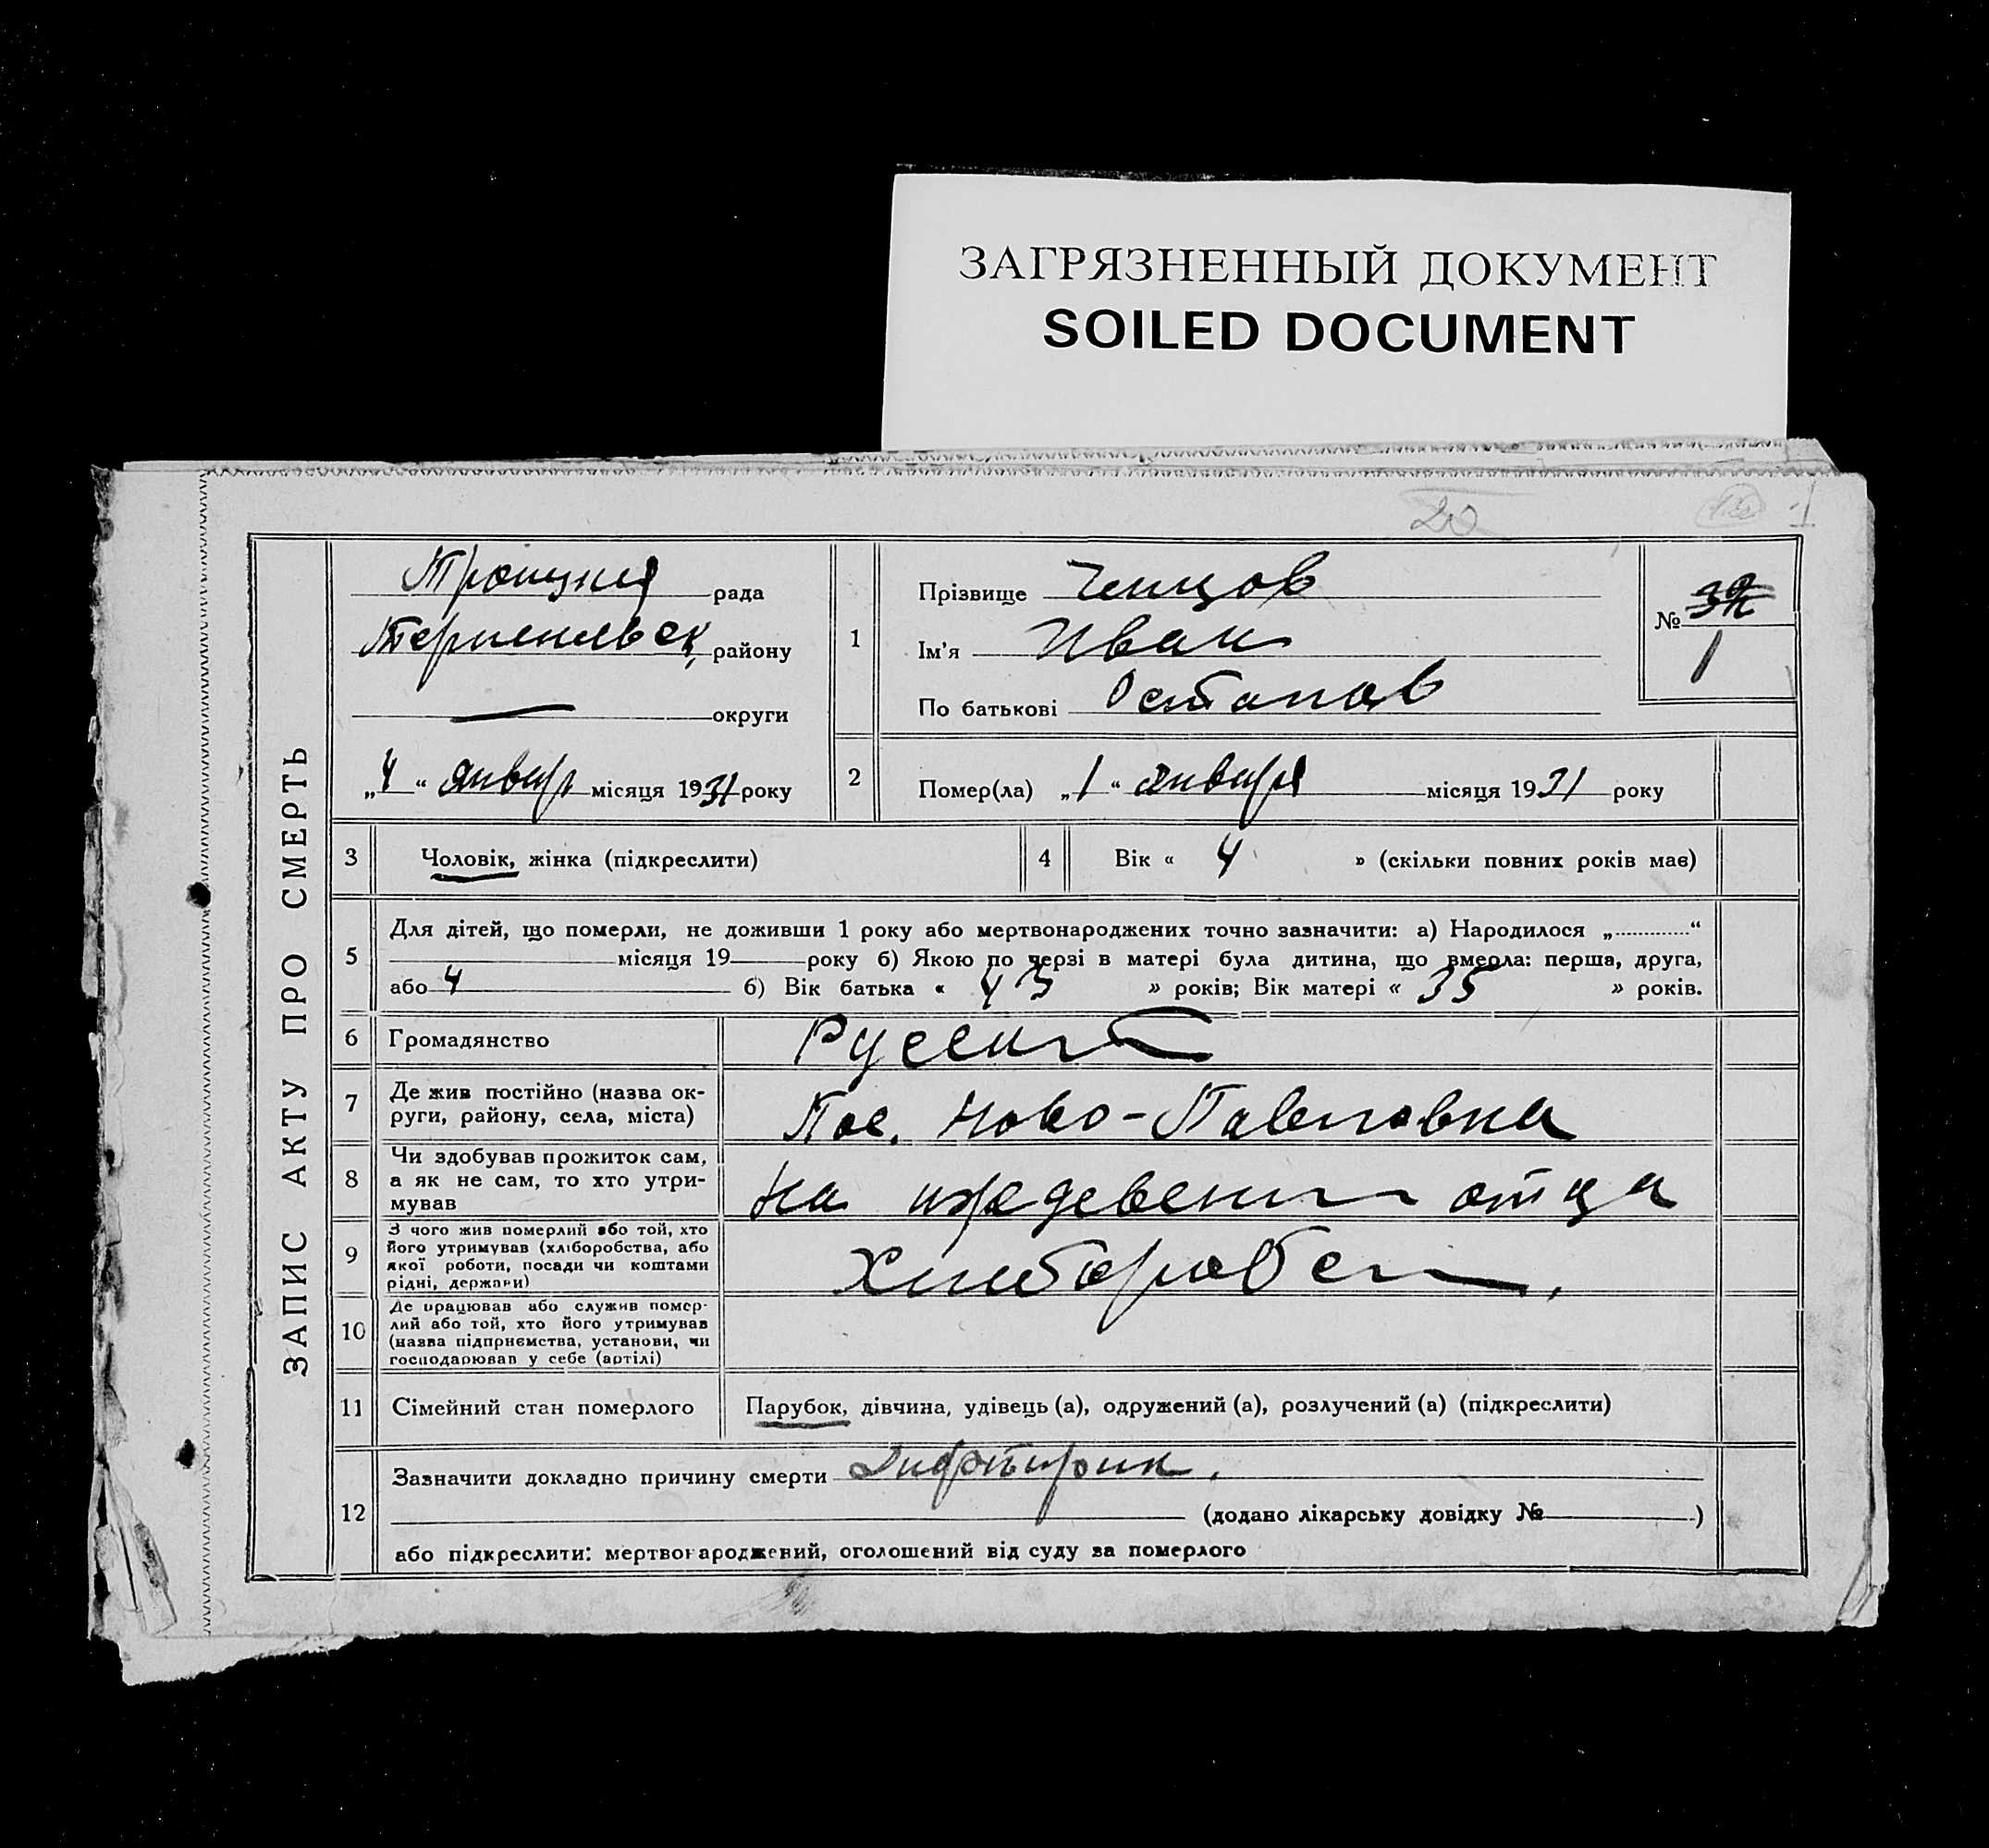 ЗАГРЯЗНЕННЫЙ ДОКУМЕНТ
SOILED DOCUMENT
20
1
ЗАПИС АКТУ ПРО СМЕРТЬ
Троицкая рада
району
округи
„4“ январ місяця 1931 року
1
Прізвище
Ім'я Иван
По батькові Остапов
№
1
2
Помер(ла) „1“ января місяця 1931 року
3
Чоловік, жінка (підкреслити)
4
Вік « 4 » (скільки повних років має)
5
Для дітей, що померли, не доживши 1 року або мертвонароджених точно зазначити: а) Народилося „ “
місяця 19 року б) Якою по черзі в матері була дитина, що вмерла: перша, друга,
або 4 б) Вік батька « 43 » років; Вік матері « 35 » років.
6
Громадянство
Русский
7
Де жив постійно (назва ок-
руги, району, села, міста)
Пос. Ново-Павловка
8
Чи здобував прожиток сам,
а як не сам, то хто утри-
мував
На отца
9
З чого жив померлий або той, хто
його утримував (хліборобства, або
якої роботи, посади чи коштами
рідні, держави)
10
Де працював або служив помер-
лий або той, хто його утримував
(назва підприємства, установи, чи
господарював у себе (артілі)
11
Сімейний стан померлого
Парубок, дівчина, удівець (а), одружений (а), розлучений (а) (підкреслити)
12
Зазначити докладно причину смерти
(додано лікарську довідку № )
або підкреслити: мертвонароджений, оголошений від суду за померлого